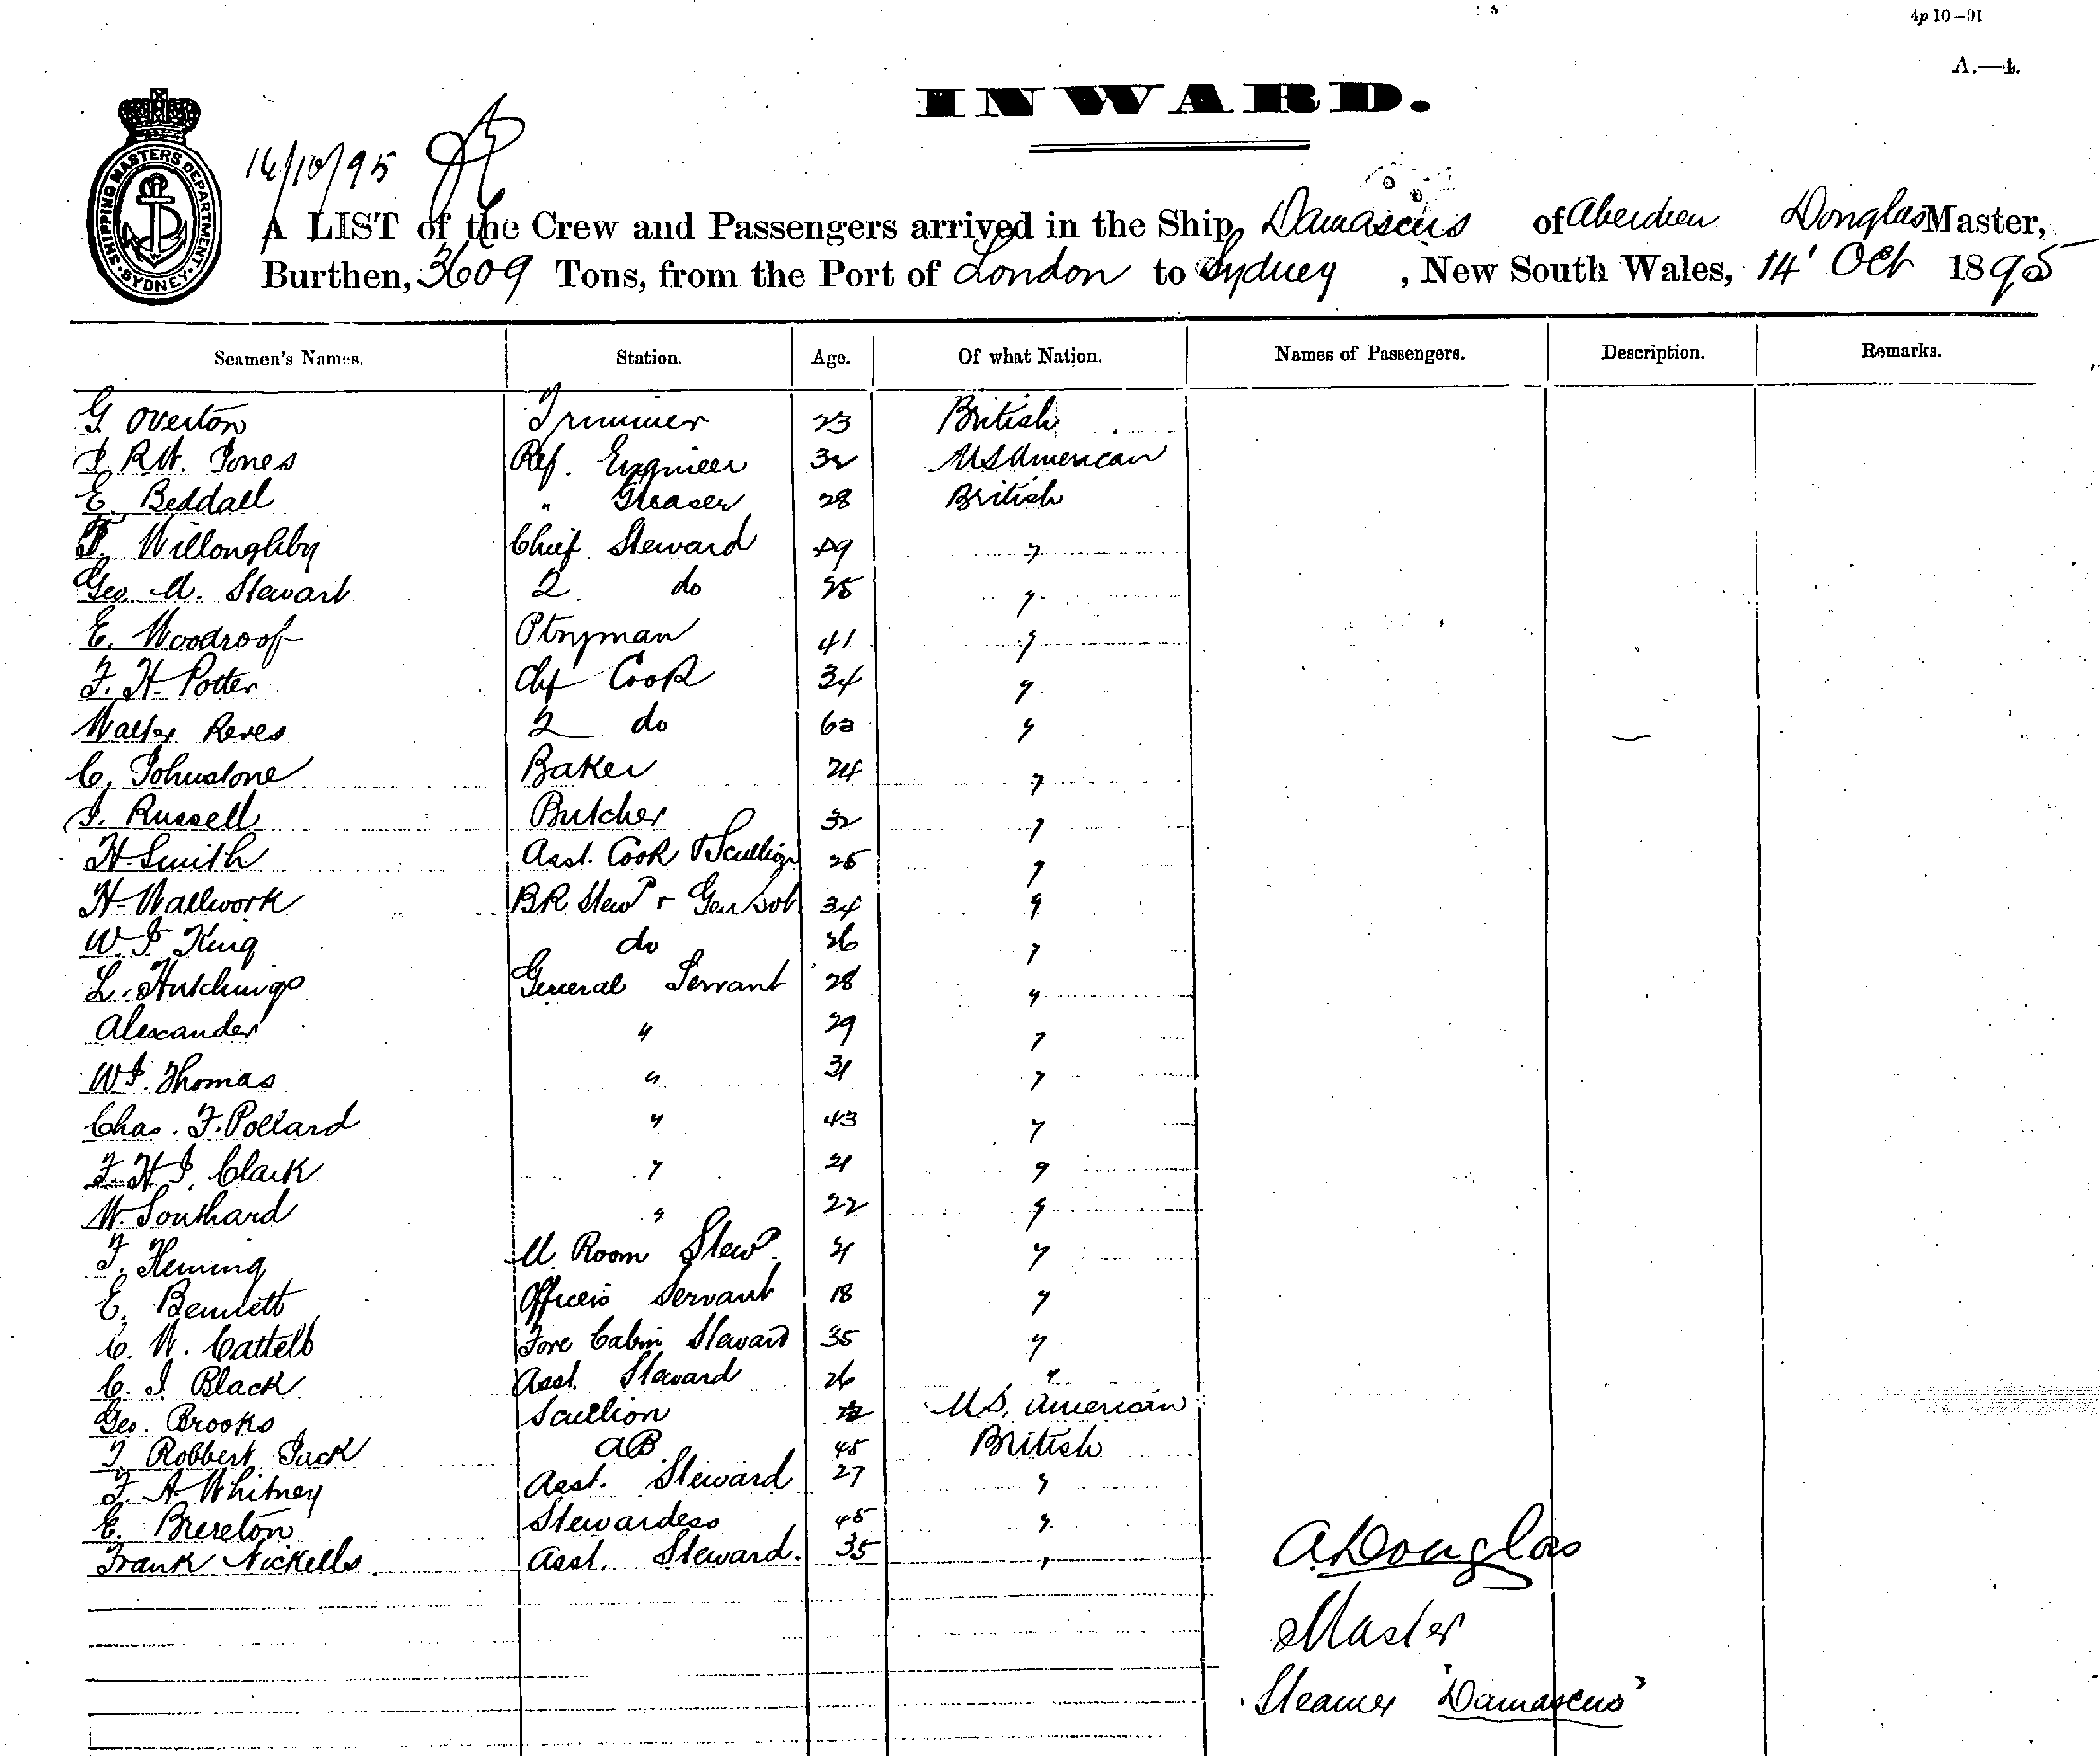 4p 10–91
A.—4.
INWARD.
14/10/95
SHIPPING MASTERS DEPARTMENT. SYDNEY.
A LIST of the Crew and Passengers arrived in the Ship, Damascus of Aberdeen Douglas Master,
Burthen, 3609 Tons, from the Port of London to Sydney, New South Wales, 14' Oct 1895
Seamen's Names. Station. Age. Of what Nation. Names of Passengers. Description. Remarks.
G Overton Trimmer 23 British
J. R.W. Jones Ref. Engineer 32 US American
E. Beddall " Greaser 28 British
F. Willoughby Chief Steward 49 "
Geo. M. Stewart 2 do 25 "
E. Woodroof Ptryman 41 "
F. H. Potter Chf Cook 34 "
Walter Reves 2 do 62 "
C. Johnstone Baker 24 "
J. Russell Butcher 32 "
H. Smith Asst. Cook & Scullion 25 "
H. Wallwork B.R. Stewd & Gen 34 "
W. J. King do 26 "
L. Hutchings General Servant 28 "
Alexander " 29 "
W J. Thomas " 31 "
Chas. F. Pollard " 43 "
F. H. J. Clark " 21 "
W. Southard " 22 "
F. Fleming M. Room Stewd. 21 "
E. Bennett Officers Servant 18 "
C. W. Cattell Fore Cabin Steward 35 "
C. J. Black Asst. Steward 26 "
Geo. Brooks Scullion U.S. American
J. Robbert Jack AB 45 British
F. A. Whitney Asst. Steward 27 "
E. Brereton Stewardess 45 "
Frank Nickells Asst. Steward. 35 "
A. Douglas
Master
Steamer "Damascus"